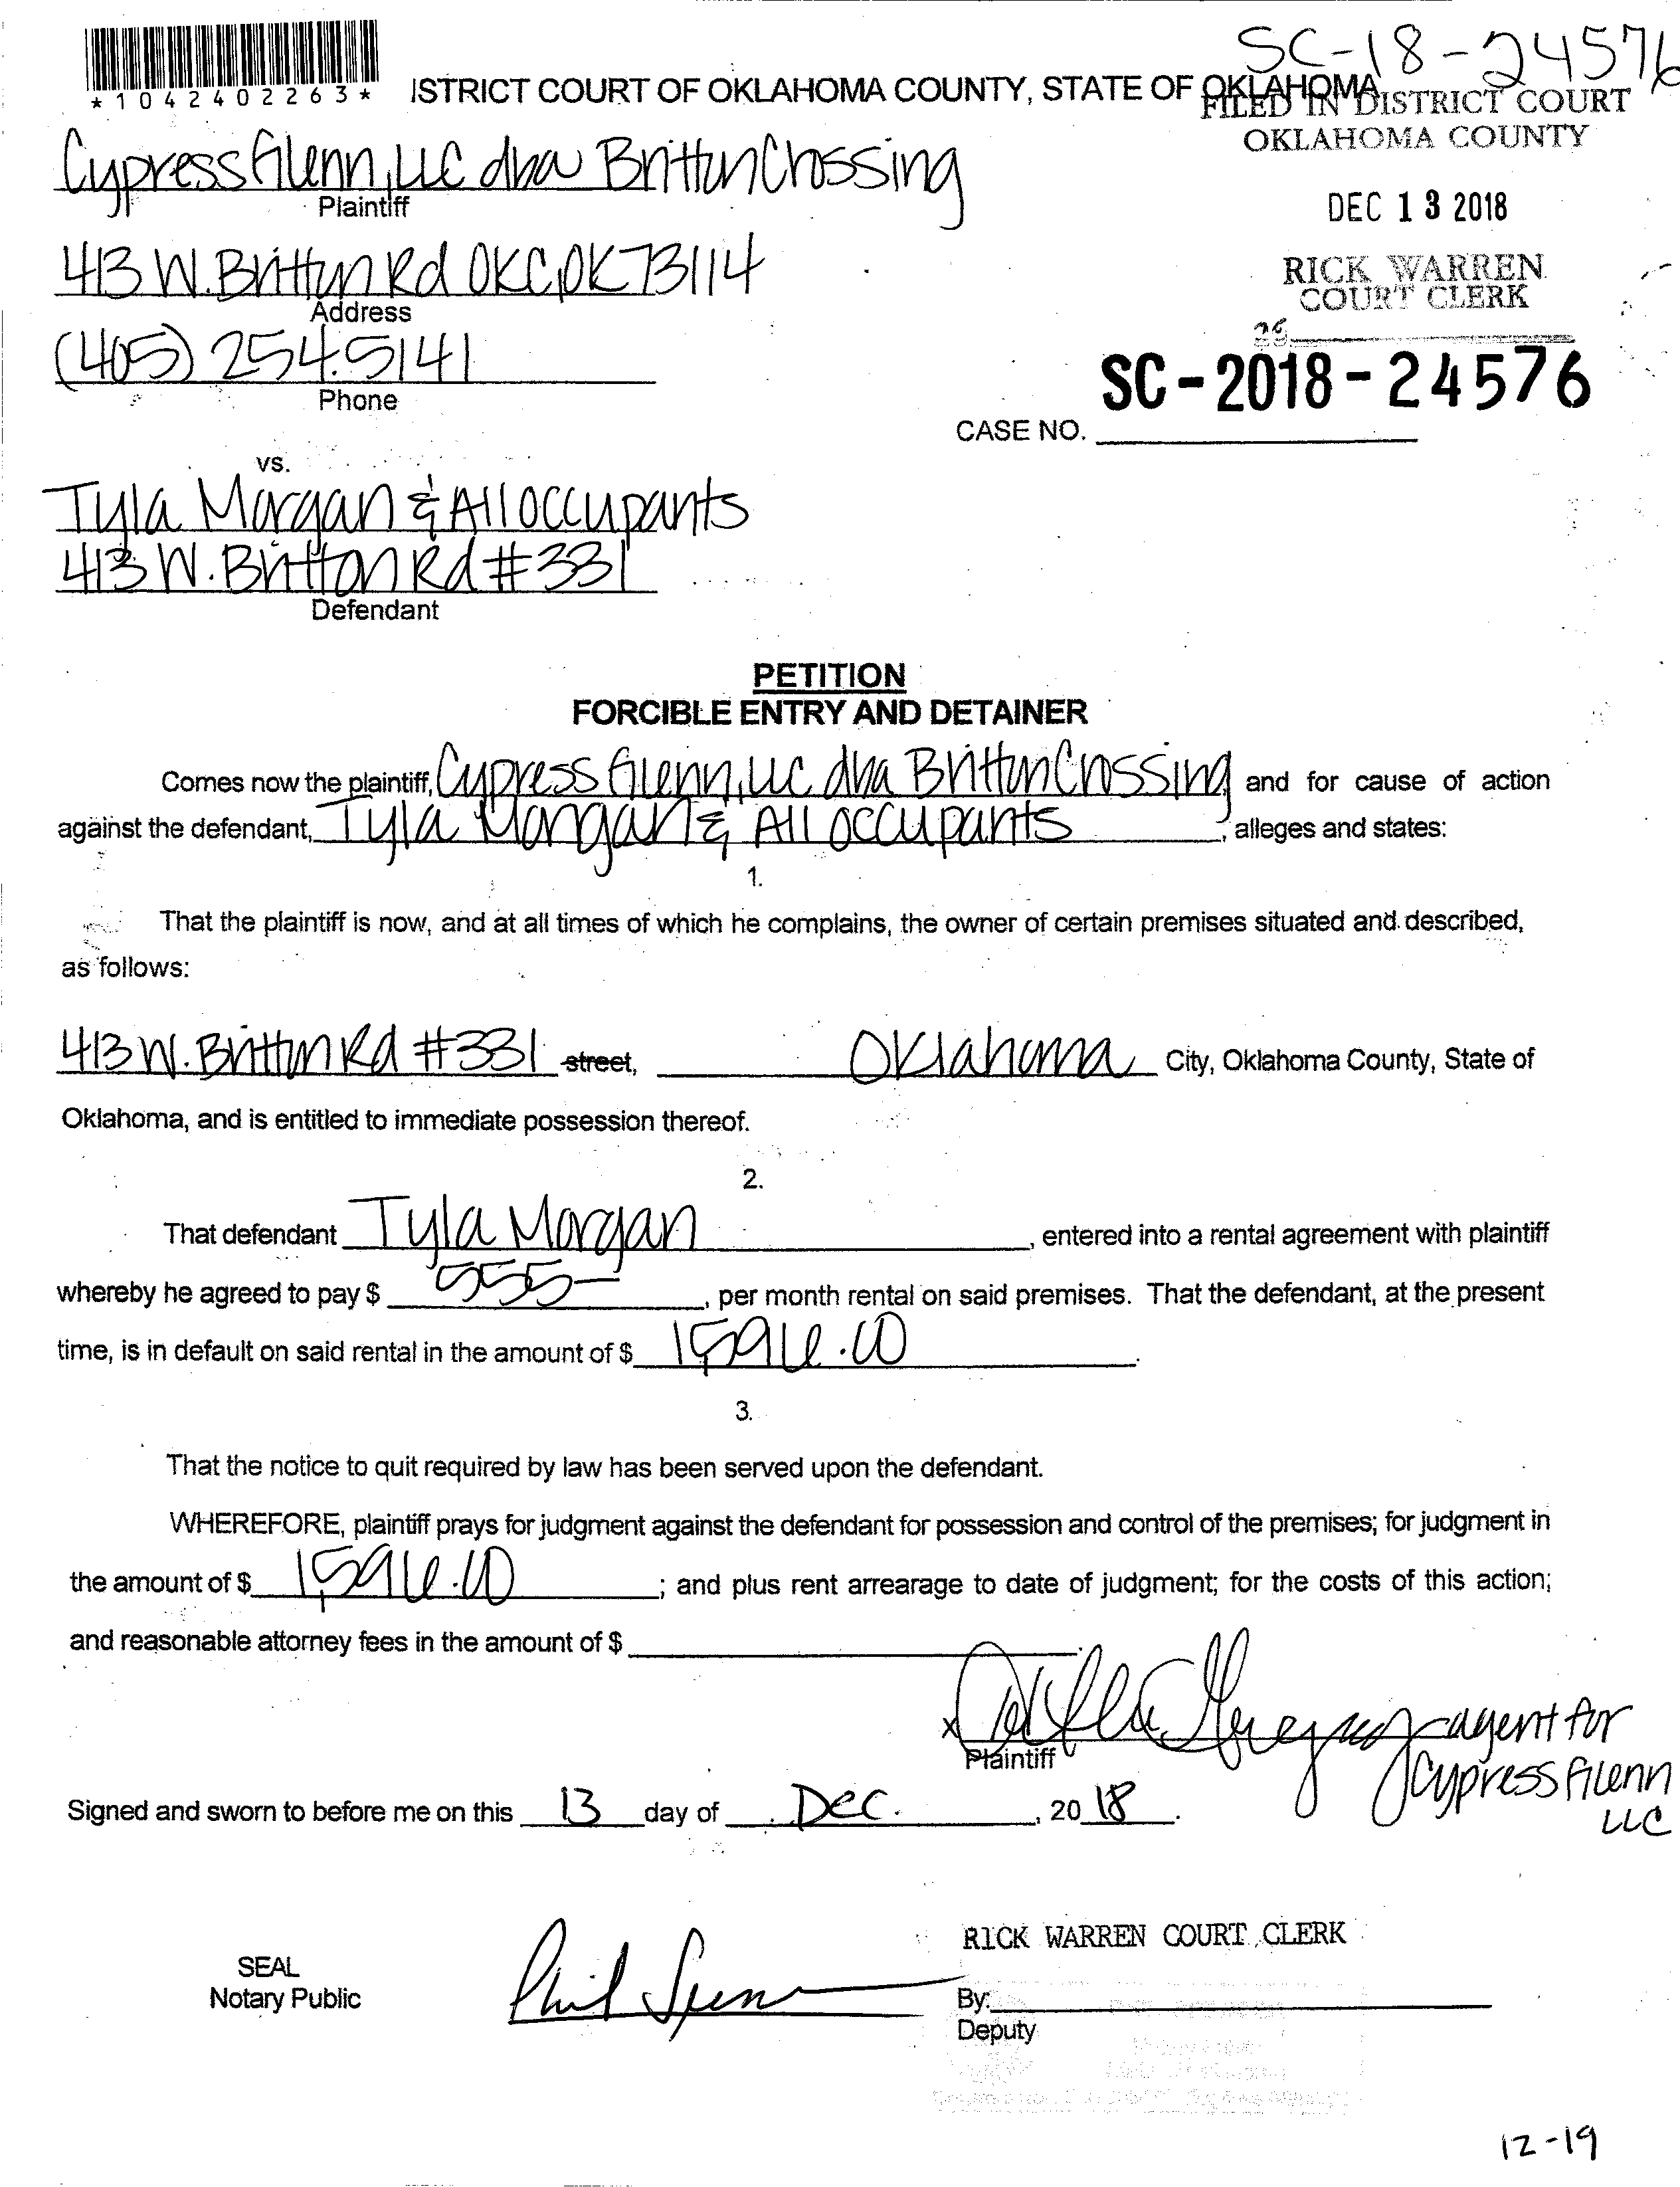 SC-18-24576
*1042402263*
ISTRICT COURT OF OKLAHOMA COUNTY, STATE OF OKLAHOMA
FILED IN DISTRICT COURT
OKLAHOMA COUNTY
Cypress Glenn, LLC dba Britton Crossing
Plaintiff
DEC 13 2018
413 W. Britton Rd OKC, OK 73114
Address
RICK WARREN
COURT CLERK
(405) 254.5141
Phone
SC-2018-24576
CASE NO.
vs.
Tyla Morgan & All occupants
413 W. Britton Rd #331
Defendant
PETITION
FORCIBLE ENTRY AND DETAINER
Comes now the plaintiff, Cypress Glenn, LLC dba Britton Crossing and for cause of action
against the defendant, Tyla Morgan & All occupants, alleges and states:
1.
That the plaintiff is now, and at all times of which he complains, the owner of certain premises situated and described,
as follows:
413 W. Britton Rd #331 street, Oklahoma City, Oklahoma County, State of
Oklahoma, and is entitled to immediate possession thereof.
2.
That defendant Tyla Morgan, entered into a rental agreement with plaintiff
whereby he agreed to pay $ 555-, per month rental on said premises. That the defendant, at the present
time, is in default on said rental in the amount of $ 1,596.00.
3.
That the notice to quit required by law has been served upon the defendant.
WHEREFORE, plaintiff prays for judgment against the defendant for possession and control of the premises; for judgment in
the amount of $ 1,596.00; and plus rent arrearage to date of judgment; for the costs of this action;
and reasonable attorney fees in the amount of $
x agent for
Plaintiff
Cypress Glenn
LLC
Signed and sworn to before me on this 13 day of Dec., 2018.
RICK WARREN COURT CLERK
SEAL
Notary Public
By:
Deputy
12-19